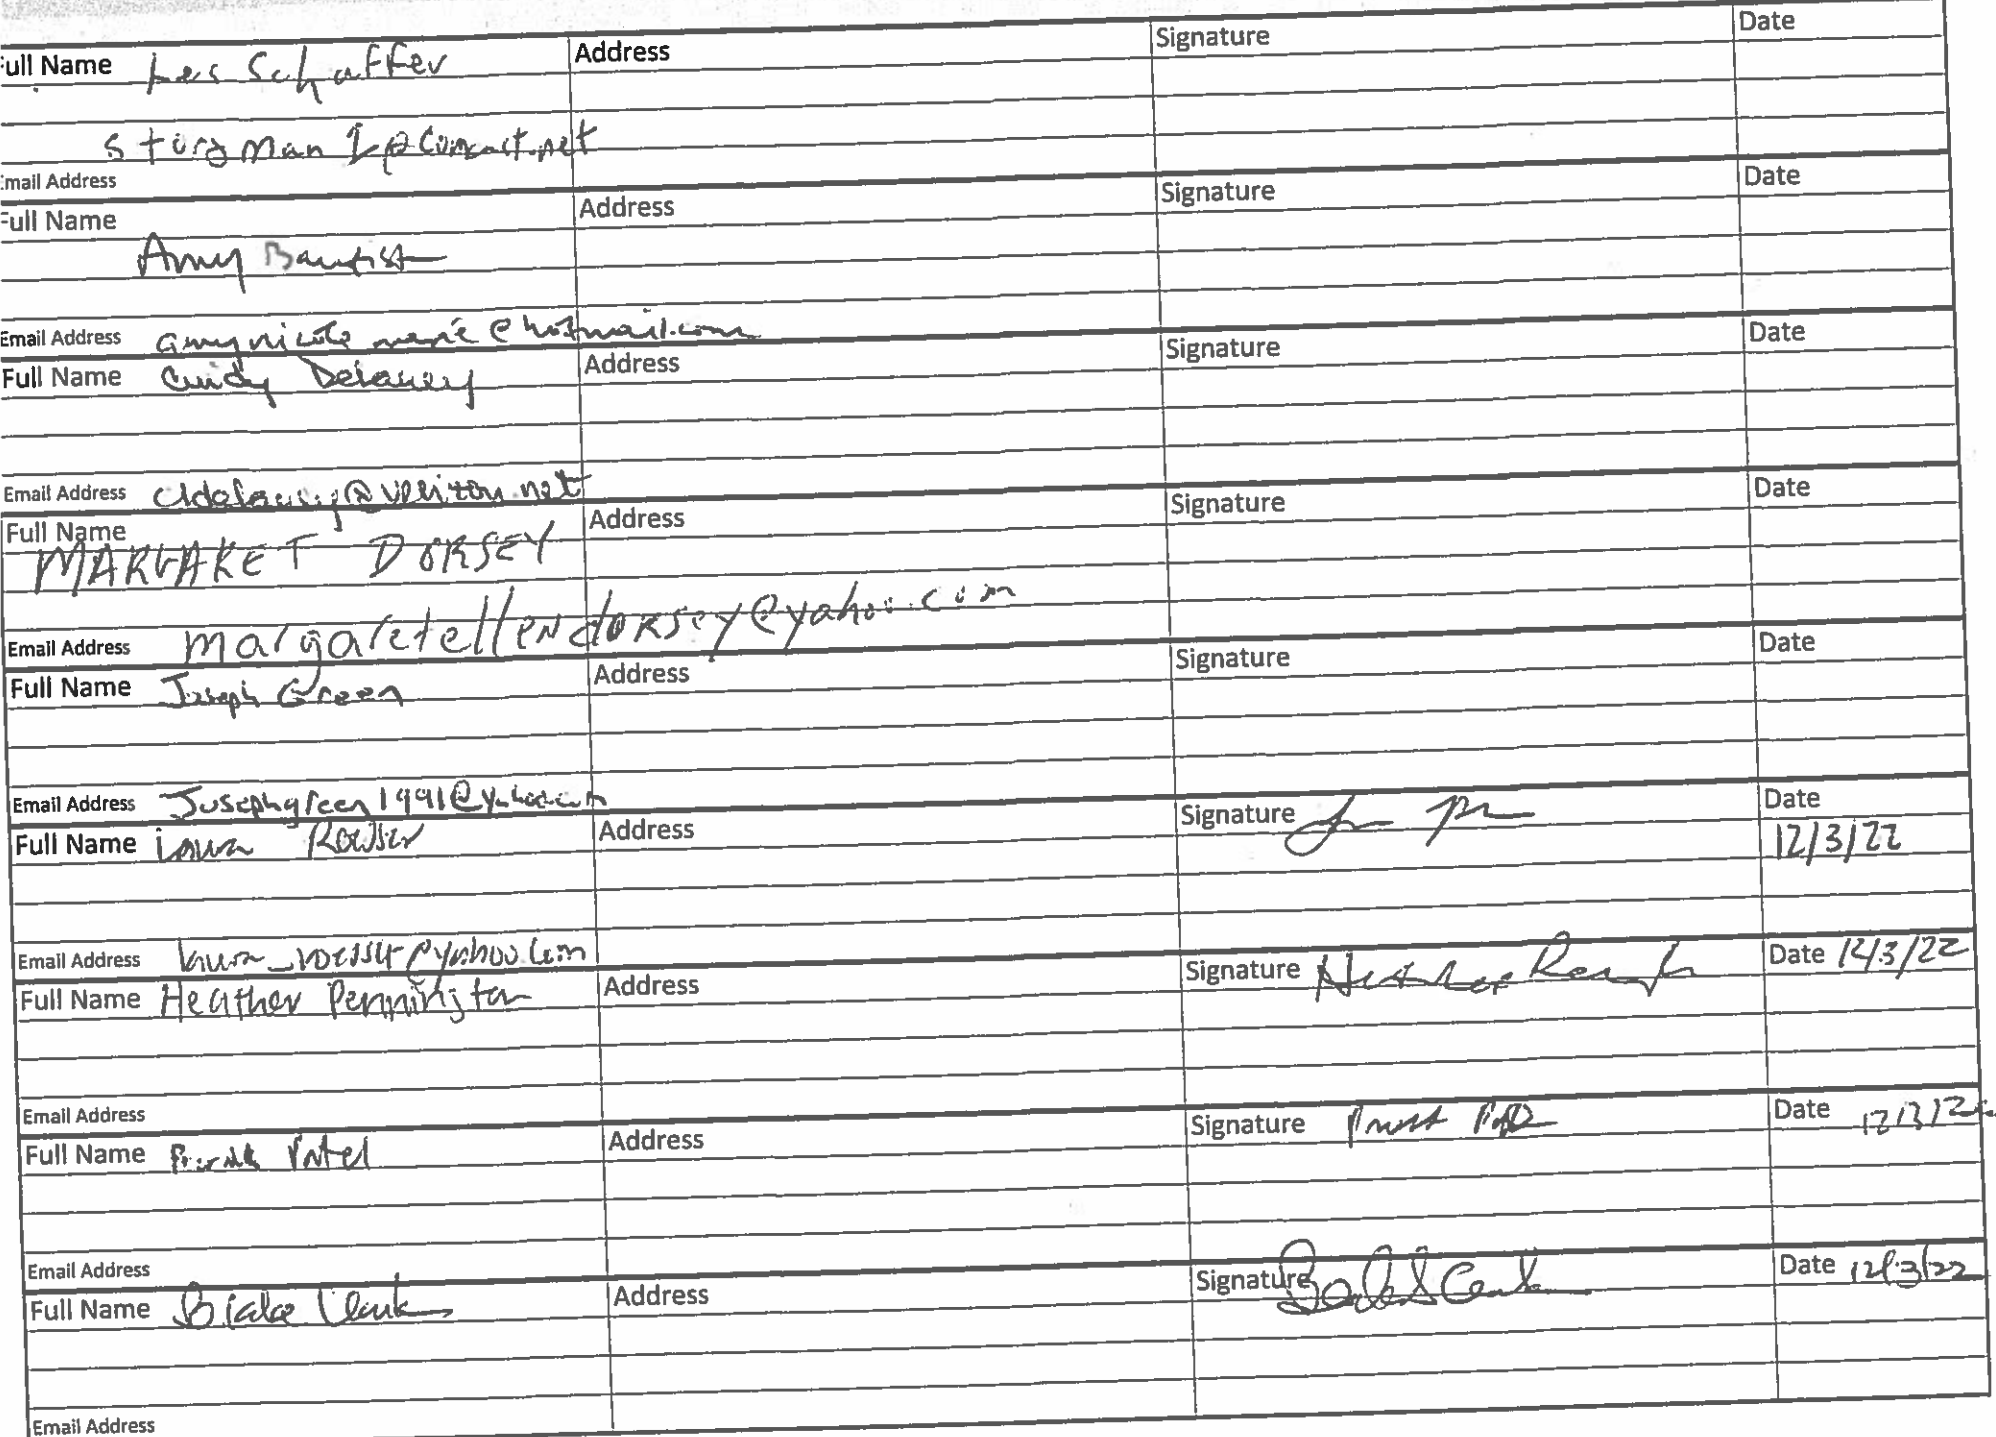 Full Name Les Schaffer Address Signature Date
storyman1@comcast.net
Email Address
Full Name Address Signature Date
Amy Bautista
Email Address amynicolemarie@hotmail.com
Full Name Cindy Delaney Address Signature Date
Email Address cldelaney@verizon.net
Full Name Address Signature Date
MARGARET DORSEY
Email Address margaretellendorsey@yahoo.com
Full Name Joseph Green Address Signature Date
Email Address Josephgreen1991@yahoo.com
Full Name Address Signature Date
12/3/22
Email Address
Full Name Heather Pennington Address Signature Date 12/3/22
Email Address
Full Name Patel Address Signature Date
Email Address
Full Name Blake Clark Address Signature Date 12/3/22
Email Address